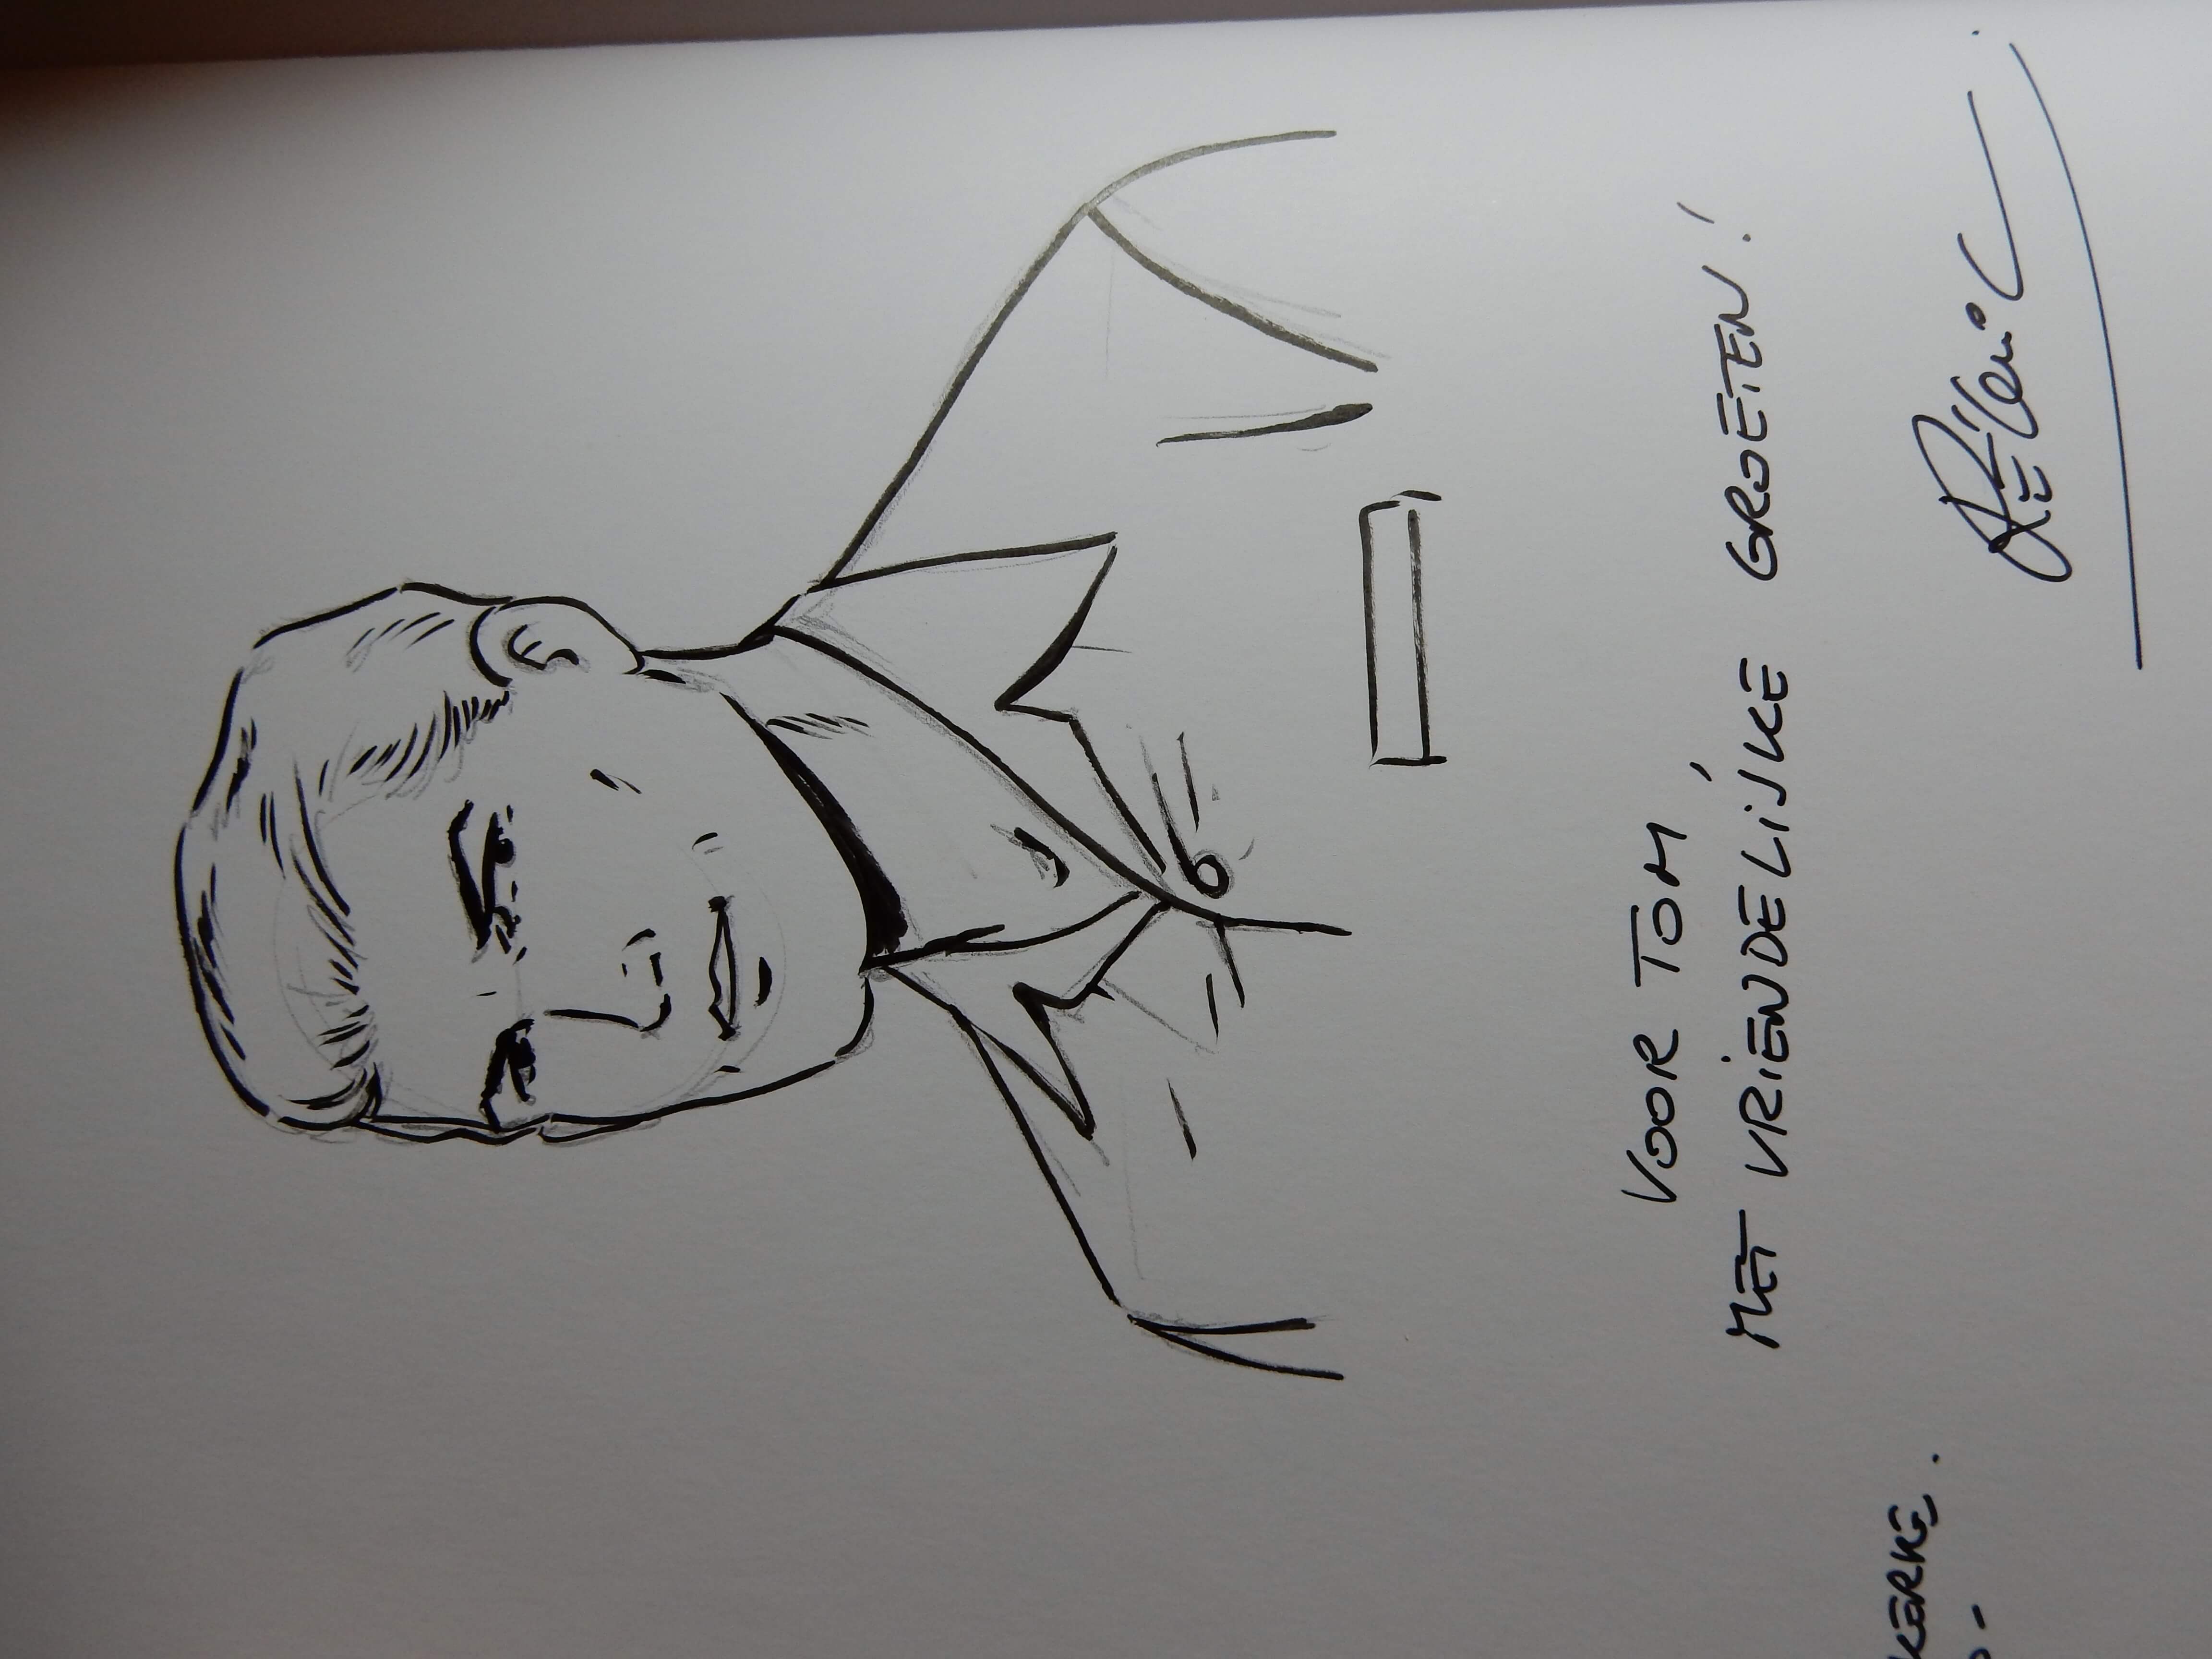 VOOR TOM,
MET VRIENDELIJKE GROETEN!
KERKE.